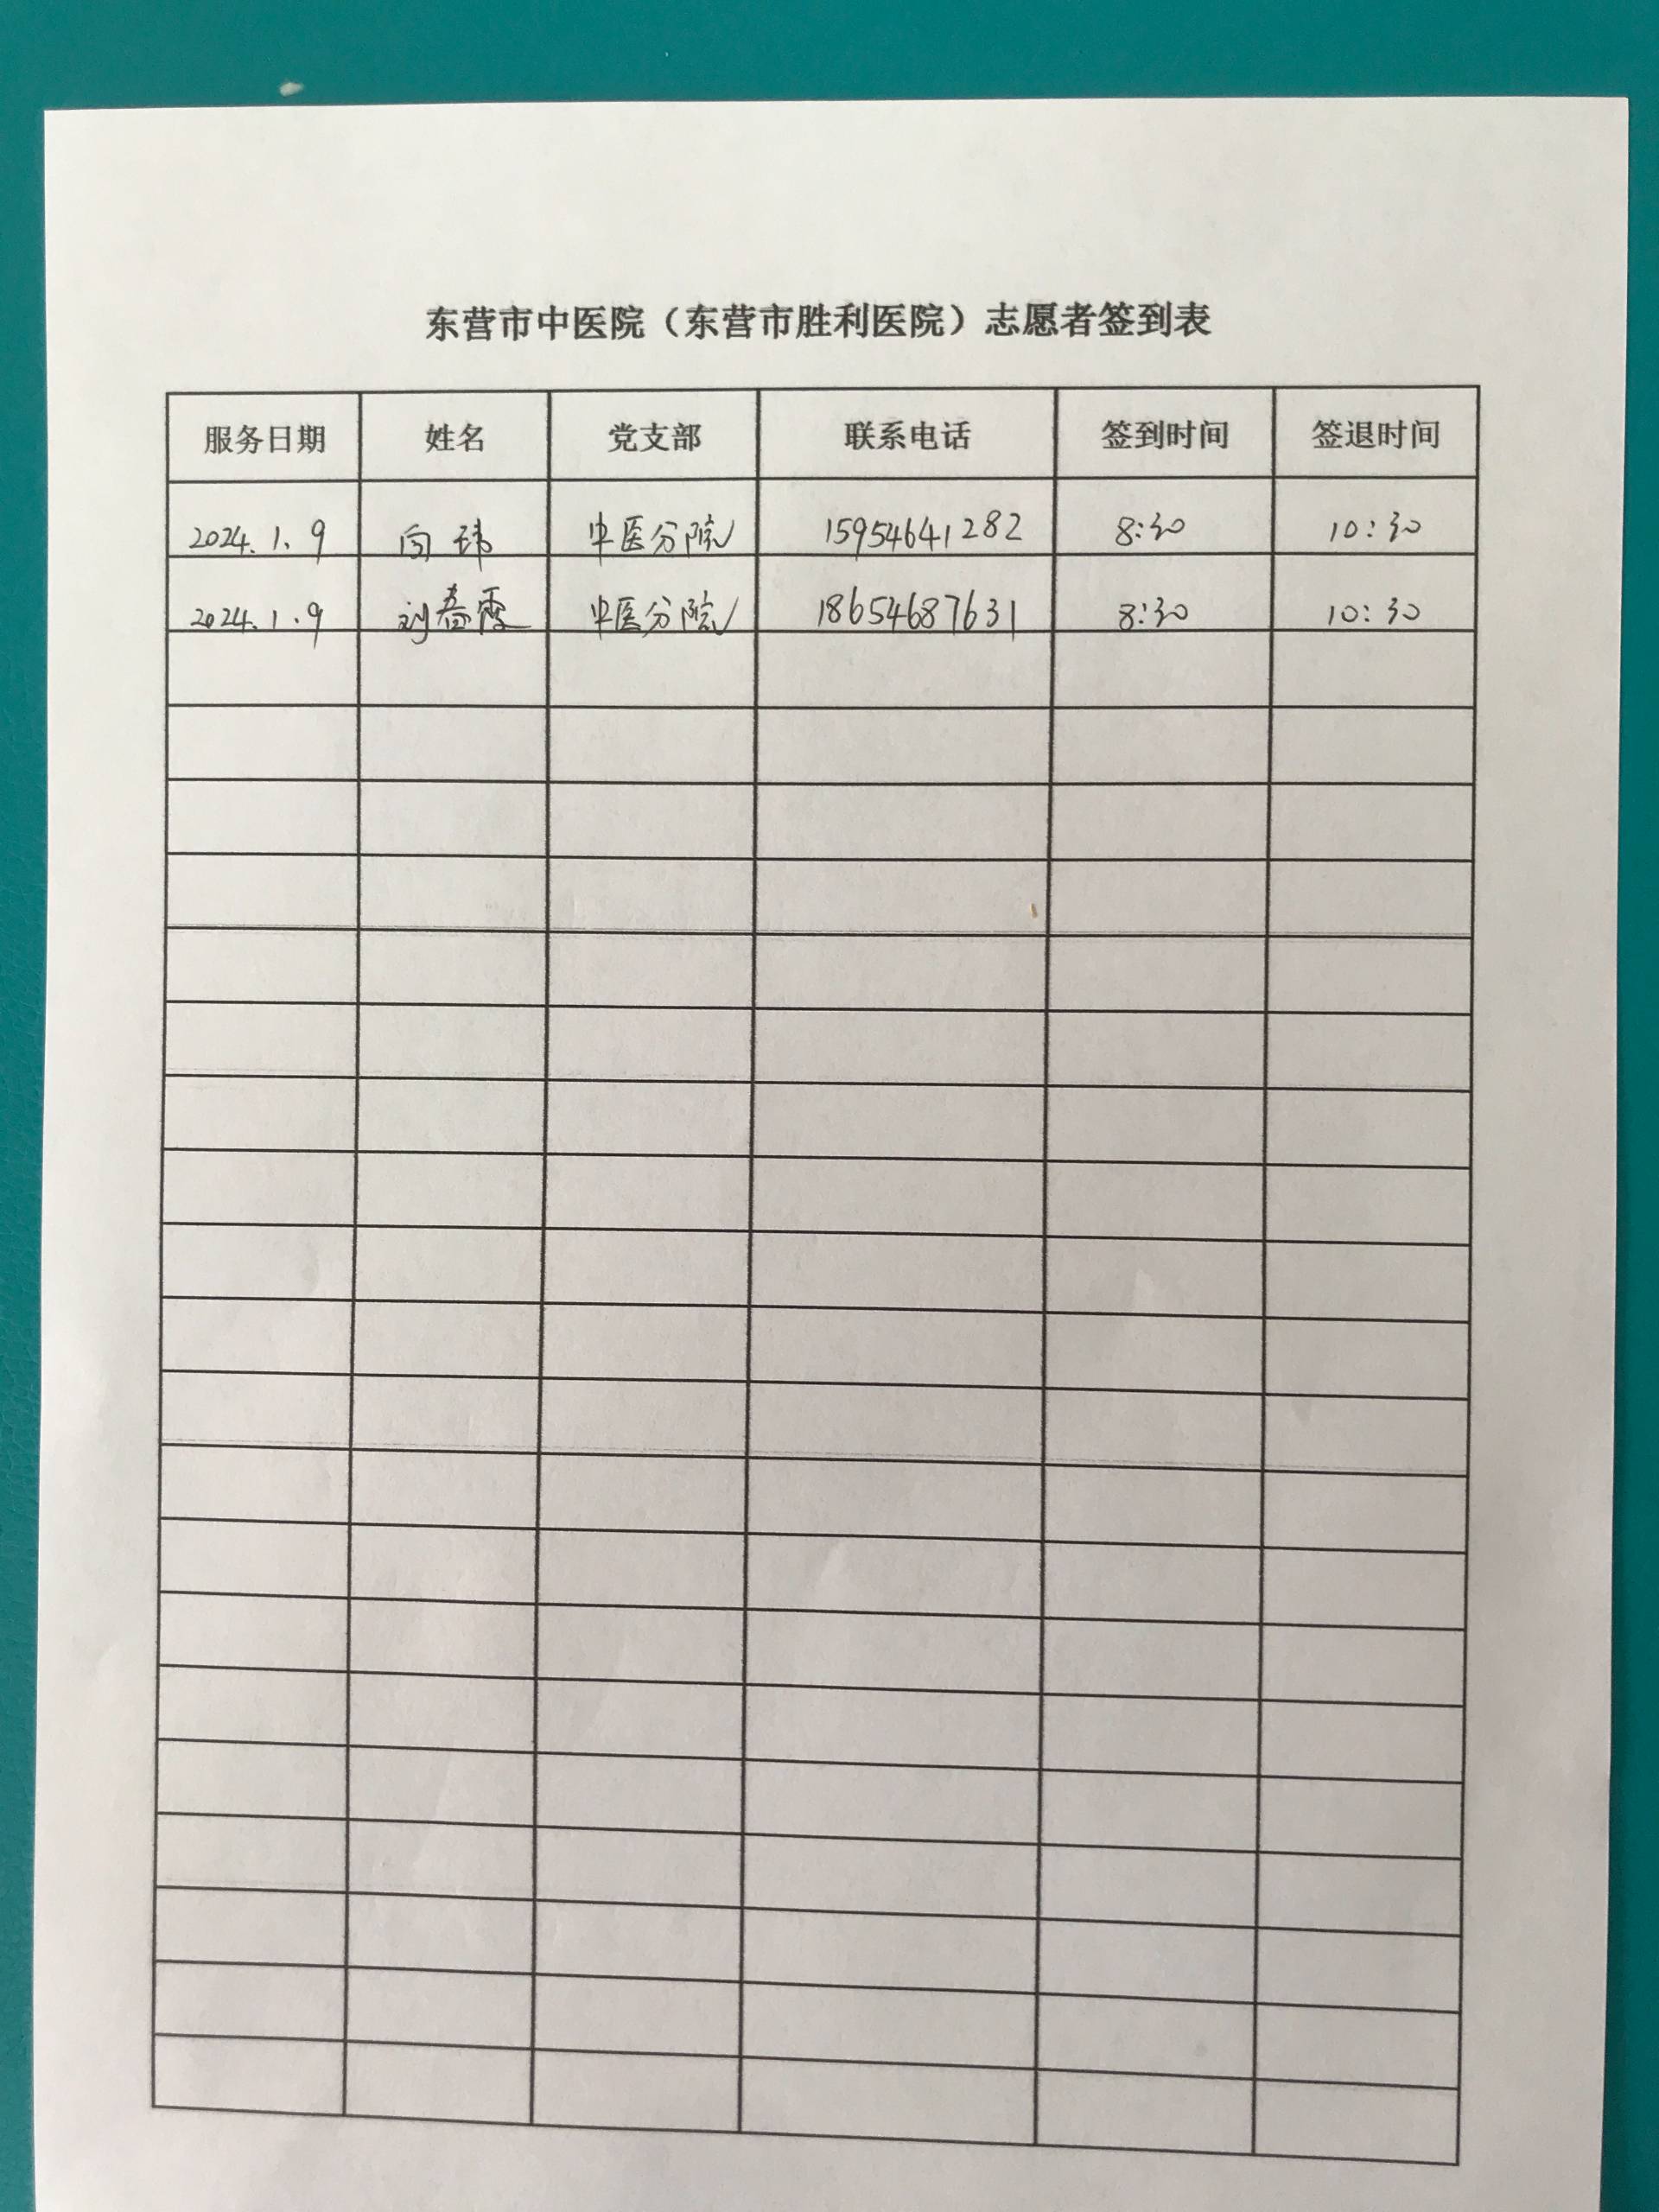 东营市中医院（东营市胜利医院）志愿者签到表
服务日期 姓名 党支部 联系电话 签到时间 签退时间
2024.1.9 向玮 中医分院 15954641282 8:30 10:30
2024.1.9 刘春霞 中医分院 18654687631 8:30 10:30